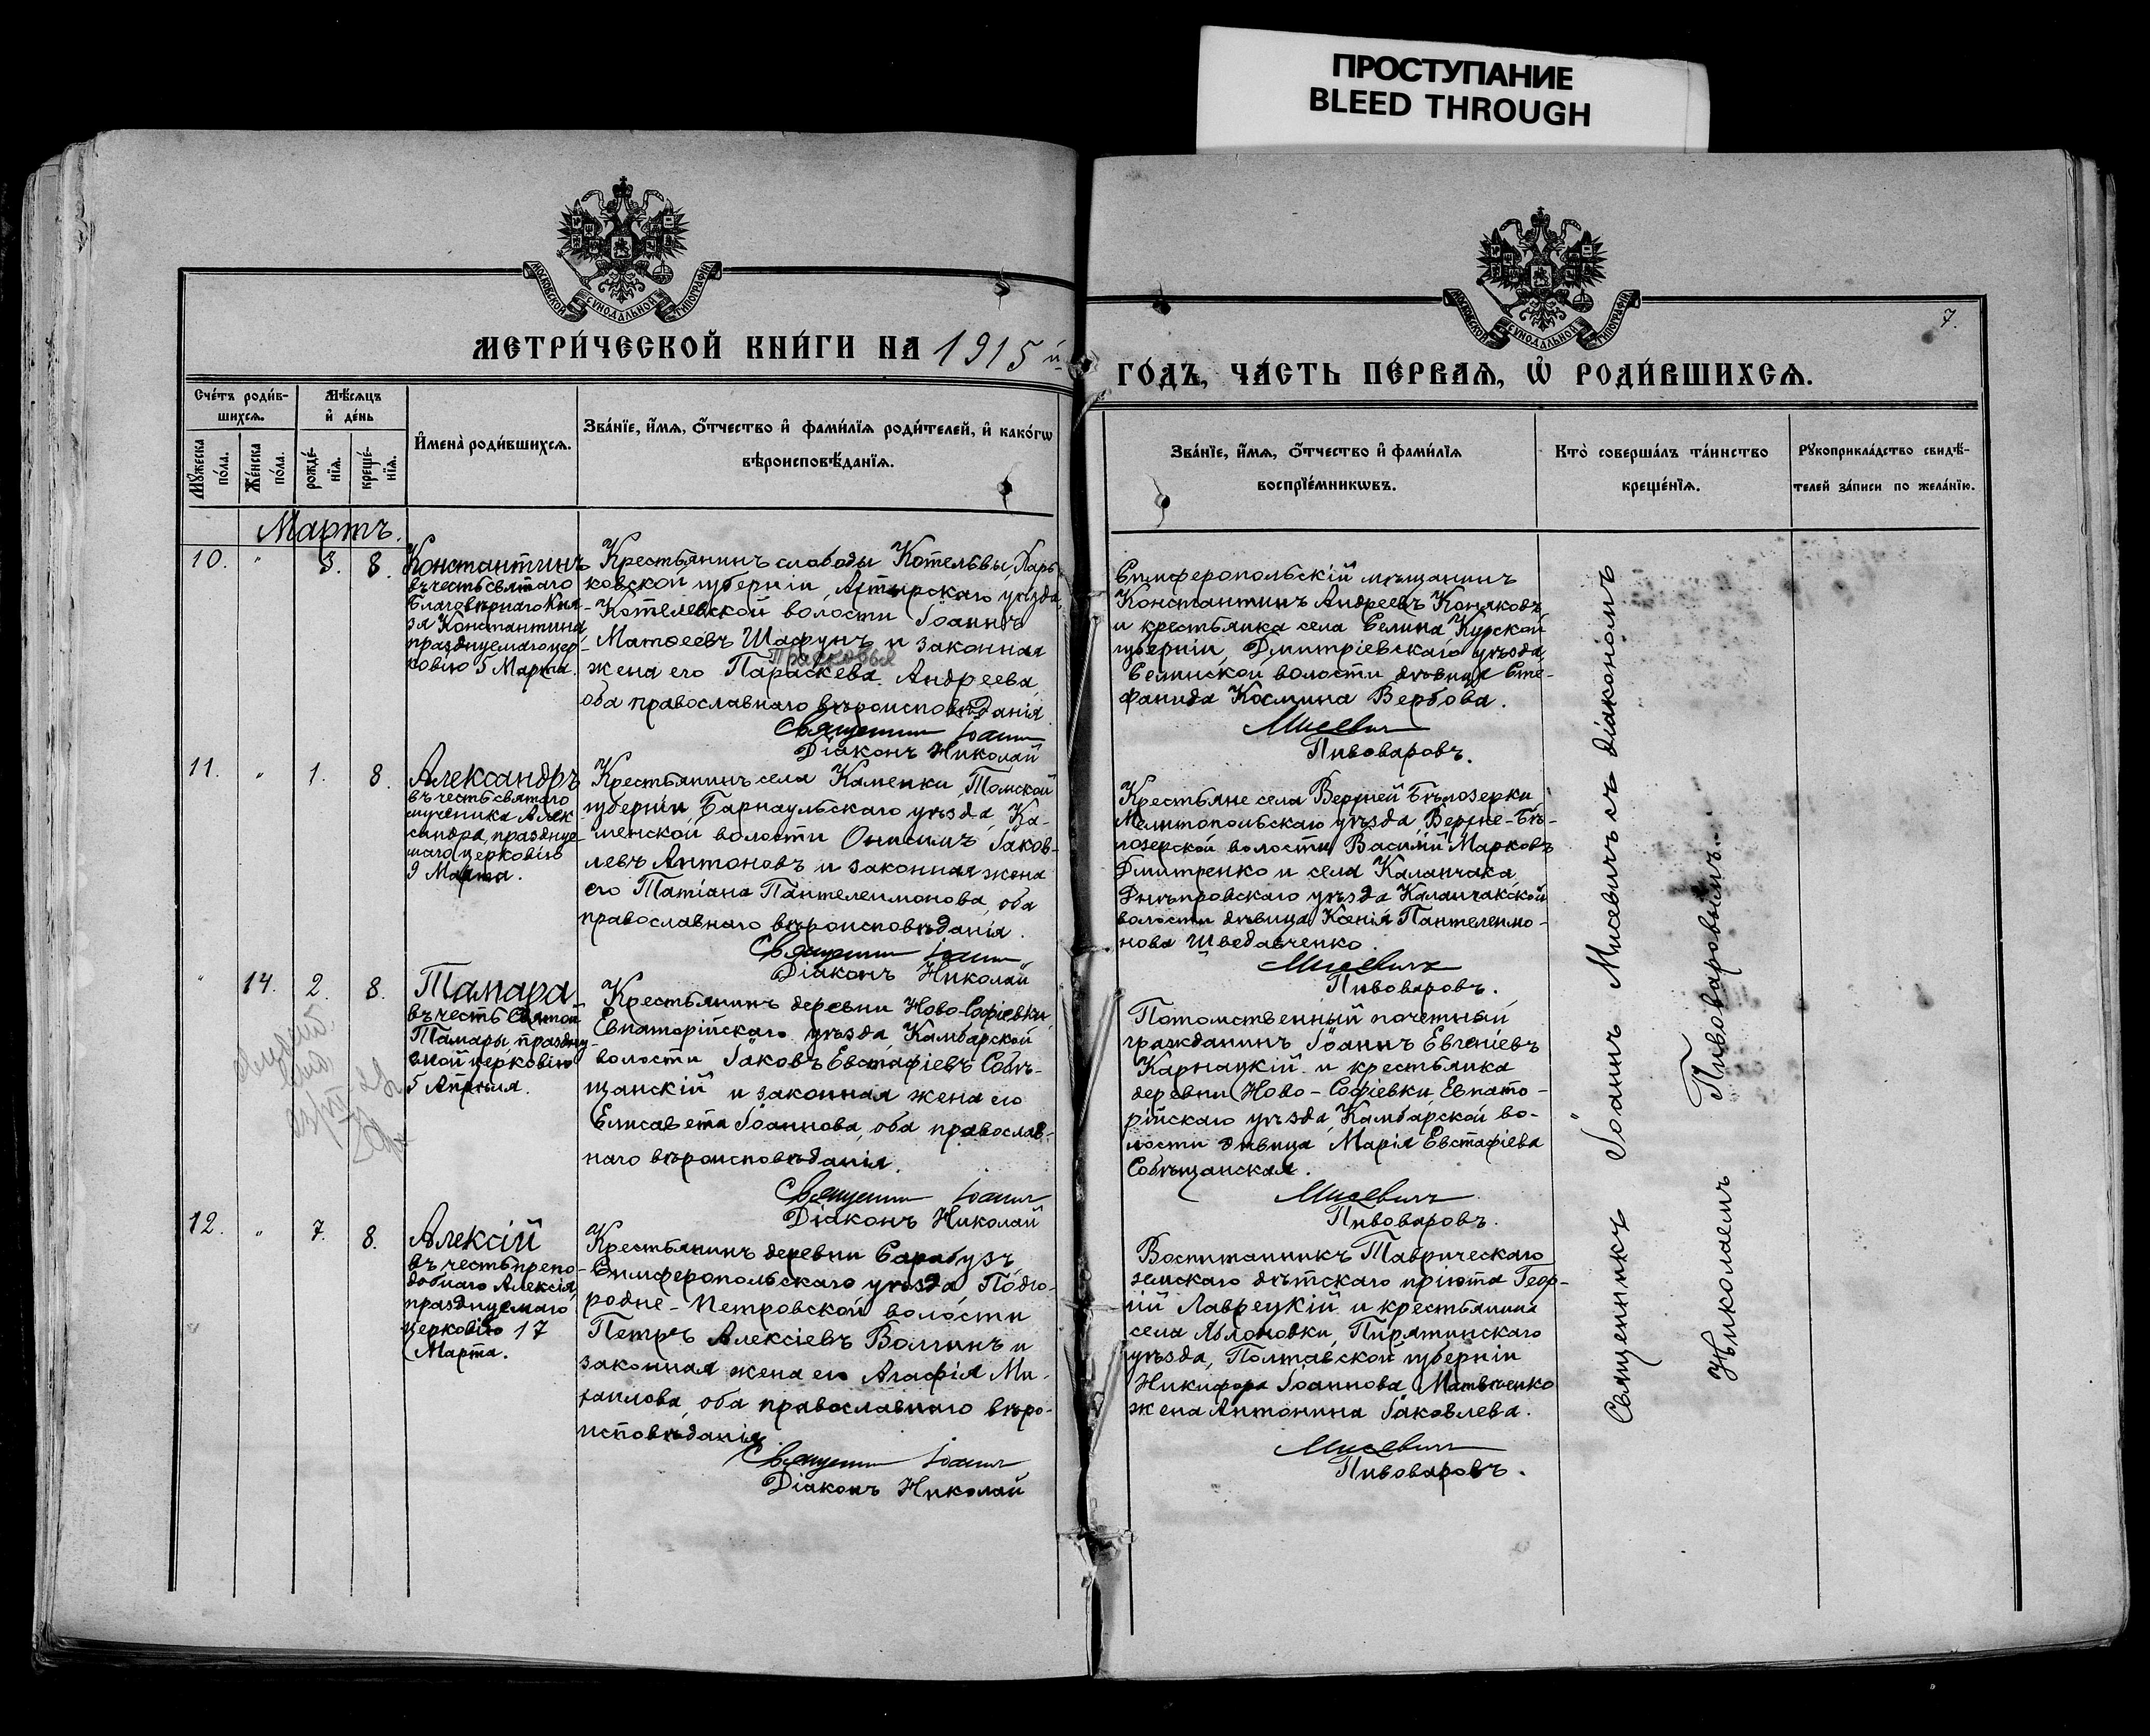 ПРОСТУПАНИЕ
BLEED THROUGH
МОСКОВСКОЙ СУНОДАЛЬНОЙ ТИПОГРАФІИ
МОСКОВСКОЙ СУНОДАЛЬНОЙ ТИПОГРАФІИ
7.
МЕТРИ́ЧЕСКОЙ КНИ́ГИ НА 1915 й
ГО́ДЪ, ЧА́СТЬ ПЕ́РВАЯ, Ѡ҆ РОДИ́ВШИХСѦ.
Сче́тъ роди́в-
шихсѧ.
Мꙋ́жеска по́ла.
Же́нска по́ла.
Мѣ́сѧцъ
и҆ де́нь
рожде́-
нїѧ.
креще́-
нїѧ.
И҆мена̀ роди́вшихсѧ.
Зва́нїе, и҆́мѧ, ѻ҆́тчество и҆ фами́лїѧ роди́телей, и҆ како́гѡ
вѣроисповѣ́данїѧ.
Зва́нїе, и҆́мѧ, ѻ҆́тчество и҆ фами́лїѧ
воспрїе́мникѡвъ.
Кто̀ соверша́лъ та́инство
креще́нїѧ.
Рꙋкоприкла́дство свидѣ́-
телей за́писи по жела́нїю.
Мартъ.
10. " 3. 8.
Константинъ
въ честь святаго
Благовѣрнаго Кня-
зя Константина
празднуемаго цер-
ковію 5 Марта.
Крестьянинъ слободы Котельвы, Харь-
ковской губерніи, Ахтырскаго уѣзда,
Котелевской волости Іоаннъ
Матѳеевъ Шафунъ и законная
Прасковья
жена его Параскева Андреева,
оба православнаго вѣроисповѣданія.
Священникъ Іоаннъ
Діаконъ Николай
Симферопольскій мѣщанинъ
Константинъ Андреевъ Коняковъ
и крестьянка села Селина Курской
губерніи, Дмитріевскаго уѣзда,
Селинской волости дѣвица Сте-
фанида Космина Вербова.
Мисевичъ
Пивоваровъ.
11. " 1. 8.
Александръ
въ честь святаго
мученика Алек
сандра, праздн
церковію
9 Марта.
Крестьянинъ села Каменки, Томской
губерніи Барнаульскаго уѣзда, Ка-
менской волости Онисимъ Іаков-
левъ Антоновъ и законная жена
его Татіана Пантелеимонова, оба
православнаго вѣроисповѣданія.
Священникъ Іоаннъ
Діаконъ Николай
Крестьяне села Верхней Бѣлозерки
Мелитопольскаго уѣзда, Верхне-Бѣ-
лозерской волости Василій Марковъ
Дмитренко и села Каланчака
Днѣпровскаго уѣзда Каланчакской
волости дѣвица Ксенія Пантелеимо-
нова Шведавченко.
Мисевичъ
Пивоваровъ.
" 14. 2. 8.
Тамара
въ честь Святой
Тамары, праздну-
емой церковію
5 Апрѣля.
Крестьянинъ деревни Ново-Софіевки,
Евпаторійскаго уѣзда, Камбарской
волости Іаковъ Евстафіевъ Собѣ-
щанскій и законная жена его
Елисавета Іоаннова, оба православ-
наго вѣроисповѣданія.
Священникъ Іоаннъ
Діаконъ Николай
Потомственный почетный
гражданинъ Іоаннъ Евгеніевъ
Карнацкій и крестьянка
деревни Ново-Софіевки, Евпато-
рійскаго уѣзда, Камбарской во-
лости дѣвица Марія Евстафіева
Собѣщанская.
Мисевичъ
Пивоваровъ.
12. " 7. 8.
Алексій
въ честь препо-
добнаго Алексія,
празднуемаго
церковію 17
Марта.
Крестьянинъ деревни Сарабузъ
Симферопольскаго уѣзда, Подго-
родне-Петровской волости
Петръ Алексіевъ Волгинъ и
законная жена его Агафія Ми-
хаилова, оба православнаго вѣро-
исповѣданія.
Священникъ Іоаннъ
Діаконъ Николай
Воспитанникъ Таврическаго
земскаго дѣтскаго пріюта Геор-
гій Лаврецкій и крестьянина
села Яблоновки, Пирятинскаго
уѣзда, Полтавской губерніи
Никифора Іоаннова Матвѣенко
жена Антонина Іаковлева.
Мисевичъ
Пивоваровъ.
Священникъ Іоаннъ Мисевичъ съ діакономъ
Николаемъ Пивоваровымъ.